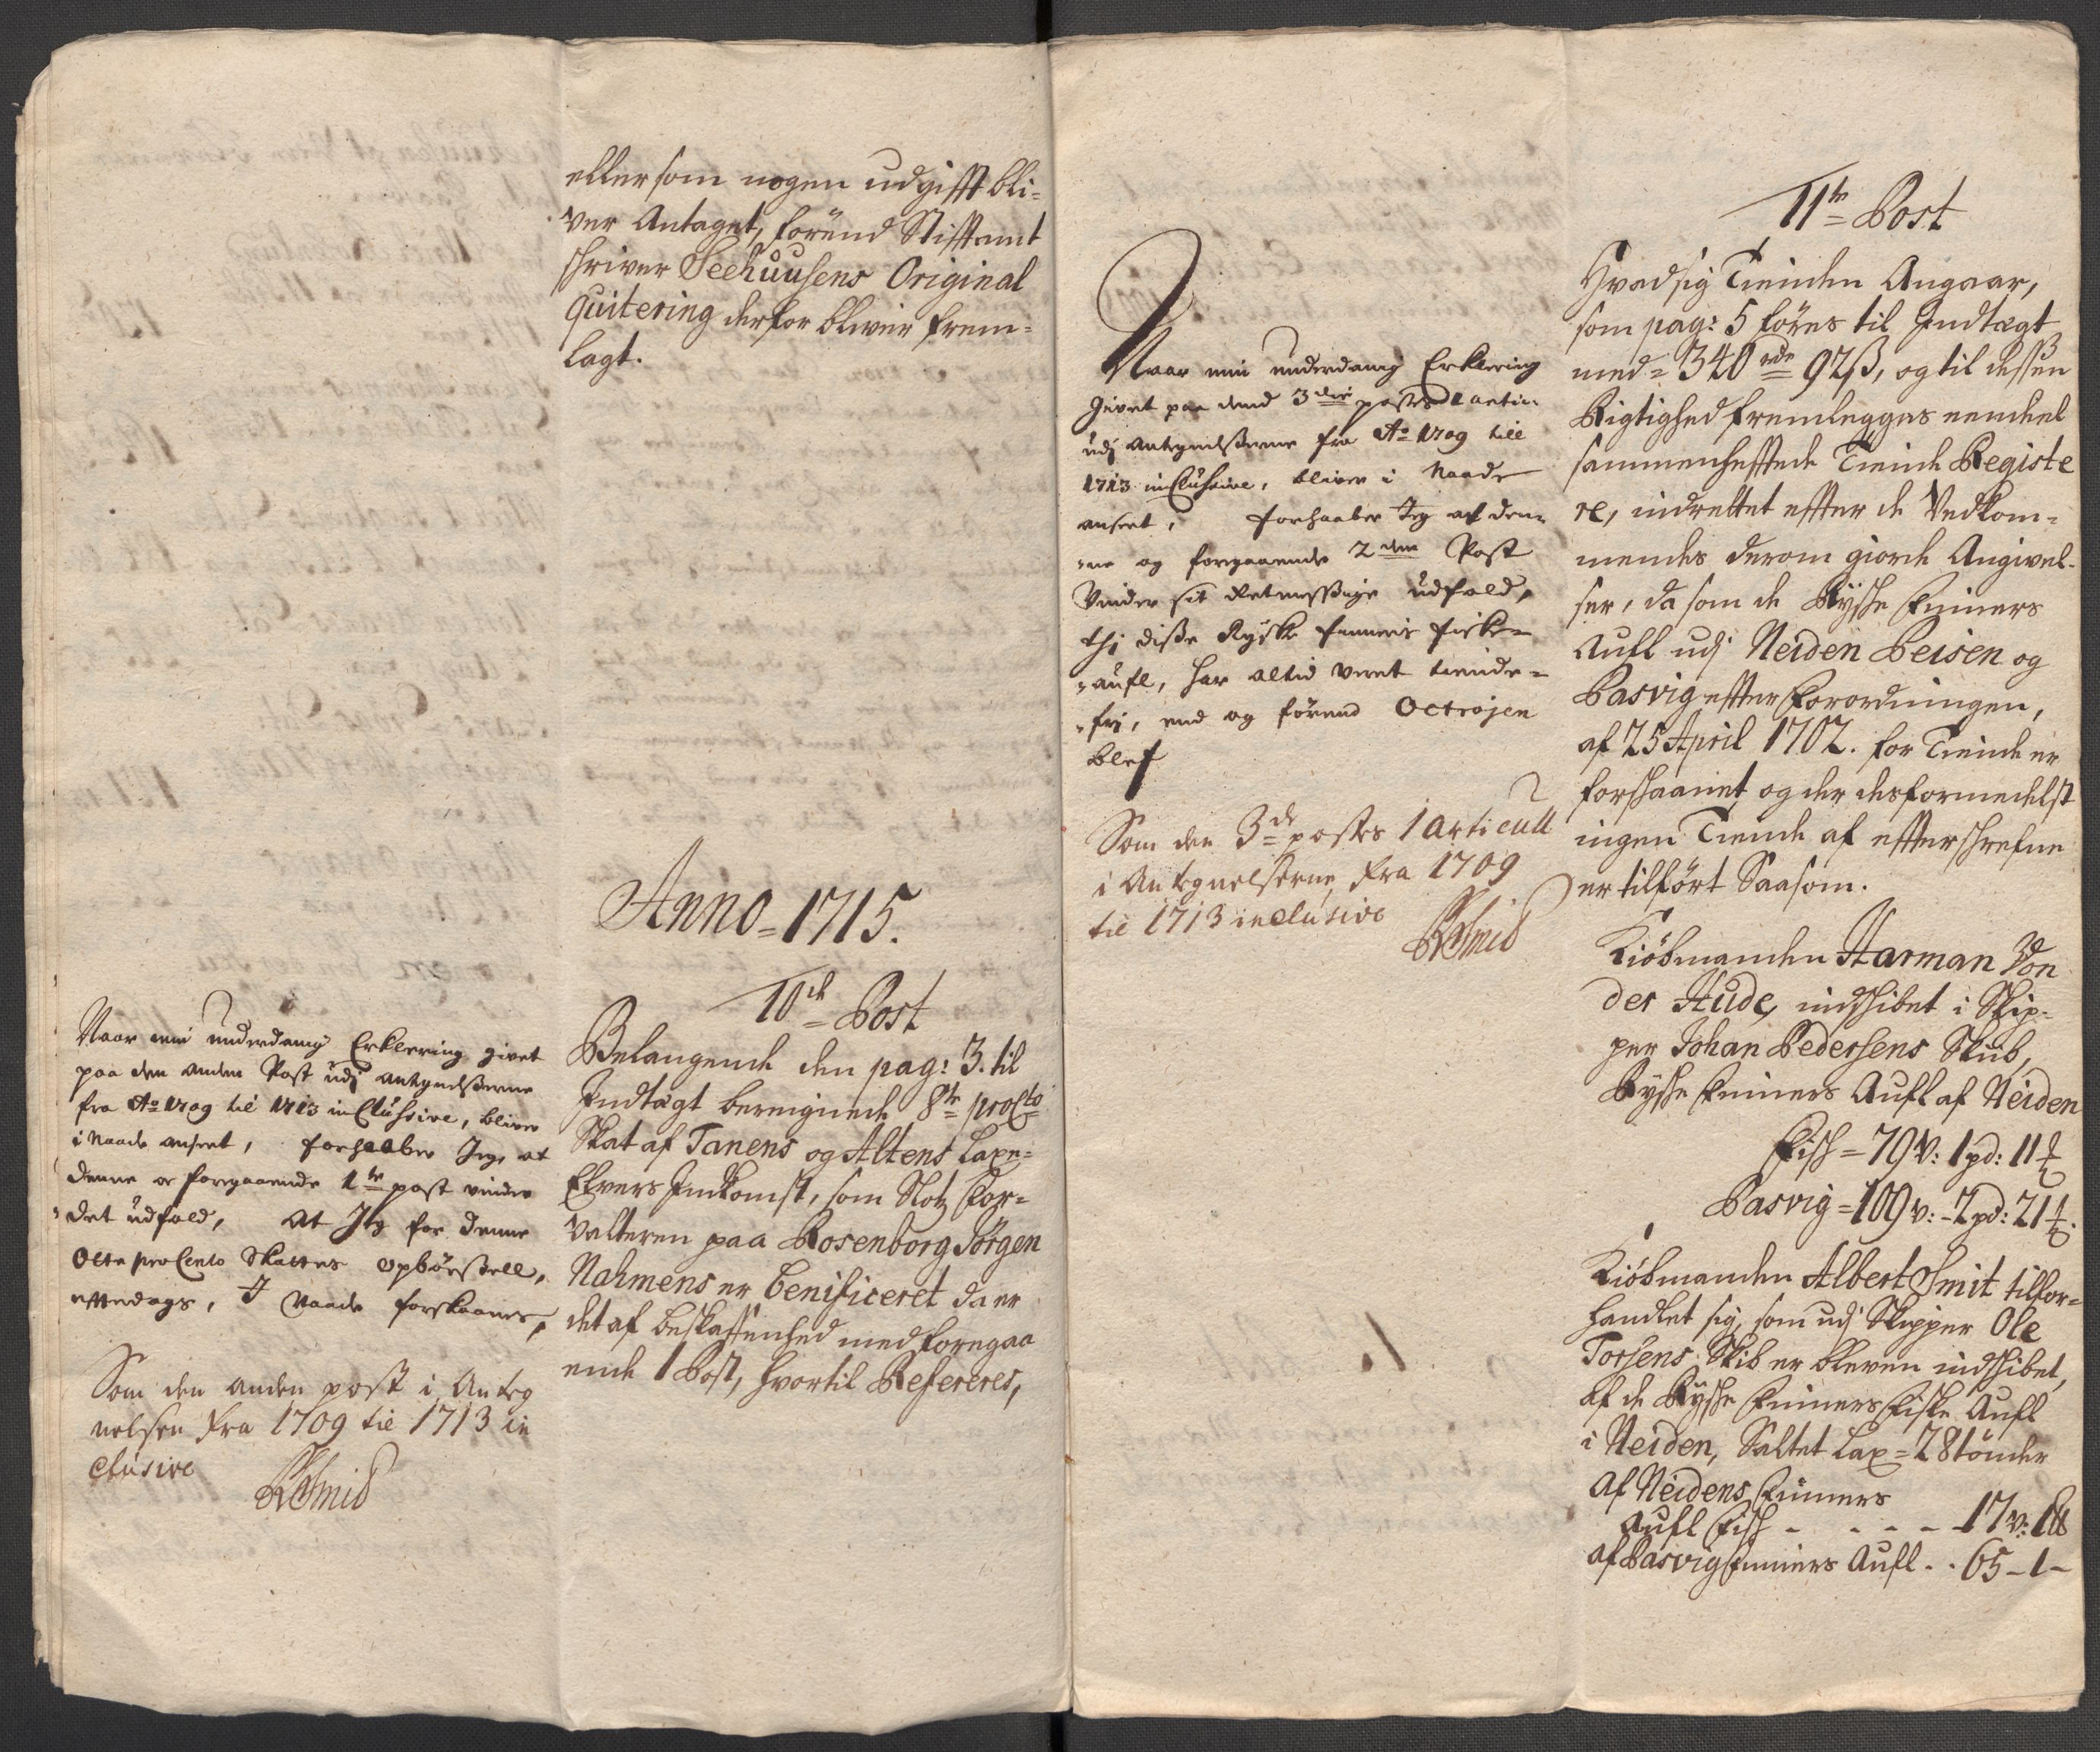 eller som nogen udgifft bli-
ver Antaget, förend Stifftamt
schriver Seehuusens Original
quitering derfor bliver frem-
lagt.
Anno 1715.
10de Post
Belangende den pag: 3. til
Indtægt beregnede 8te proCto
Skat af Tanens og Altens Laxe-
Elvers Indkomst, som Slotz For-
valteren paa Rosenborg Jörgen
Nahmens er benificeret da er
det af beskaffenhed med foregaa
ende 1 Post, hvortil Refereres,
Naar min underdanig Erklering givet
paa den anden Post udj antegnelsserne
fra Ao 1709 til 1713 inClussive, bliver
i Naade anseet, forhaaber Jeg, at
denne og foregaaende 1te post vinder
det udfald, at Jeg for denne
Otte proCento Skattes opbörssell,
efftedags, I Naade forskaanes,
Som den anden post i Anteg
nelsen fra 1709 til 1713 in
clusive
Smid
Naar min underdanig Erklering
Givet paa dend 3die postes 1 artic:
udj antegnelsserne fra Ao 1709 till
1713 inClussive, bliver i Naade
anseet, forhaaber Jeg at den-
ne og foregaaende 2den Post
Vinder sit Retmessige udfald,
thj disse Rysse finners fiske-
aufl, har altid veret tiende-
frj, end og förend Octrojen
blef
Som den 3de postes 1 articull
i Antegnelserne fra 1709
til 1713 inclusive
Smid
11te Post
Hvad sig Tienden Angaar,
som pag: 5 föres til Indtægt
med 340 rdr 92 ß, og til dessen
Rigtighed fremlegges eendeel
sammenhefftede Tiende Registe
re, indrettet effter de Vedkom-
mendes derom giorde Angivel-
ser, da som de Rysse Finners
Aufl udj Neiden Beisen og
Pasvig effter Forordningen,
af 25 April 1702. for Tiende er
forskaanet og der desformedelst
ingen Tiende af effterschrefne
er tilfört Saasom.
Kiöbmanden Harman Von
der Hude, indskibet i Skip-
per Johan Pedersens Skib,
Rysse Finners Aufl af Neiden
Fisch = 79 V: 1 pd: 11 ℔
Pasvig = 109 V: - 2 pd: 21 ℔.
Kiöbmanden Albert Smit tilfor-
handlet sig, som udj Skipper Ole
Torsens Skib er bleven indskibet,
af de Rysse Finners Fiske Aufl
i Neiden, Saltet Lax = 28 tönder
Af Neidens Finners
Aufl Fisch - - - - 17 V: 1
af Pasvig Finners Aufl - - 65 - 1 -